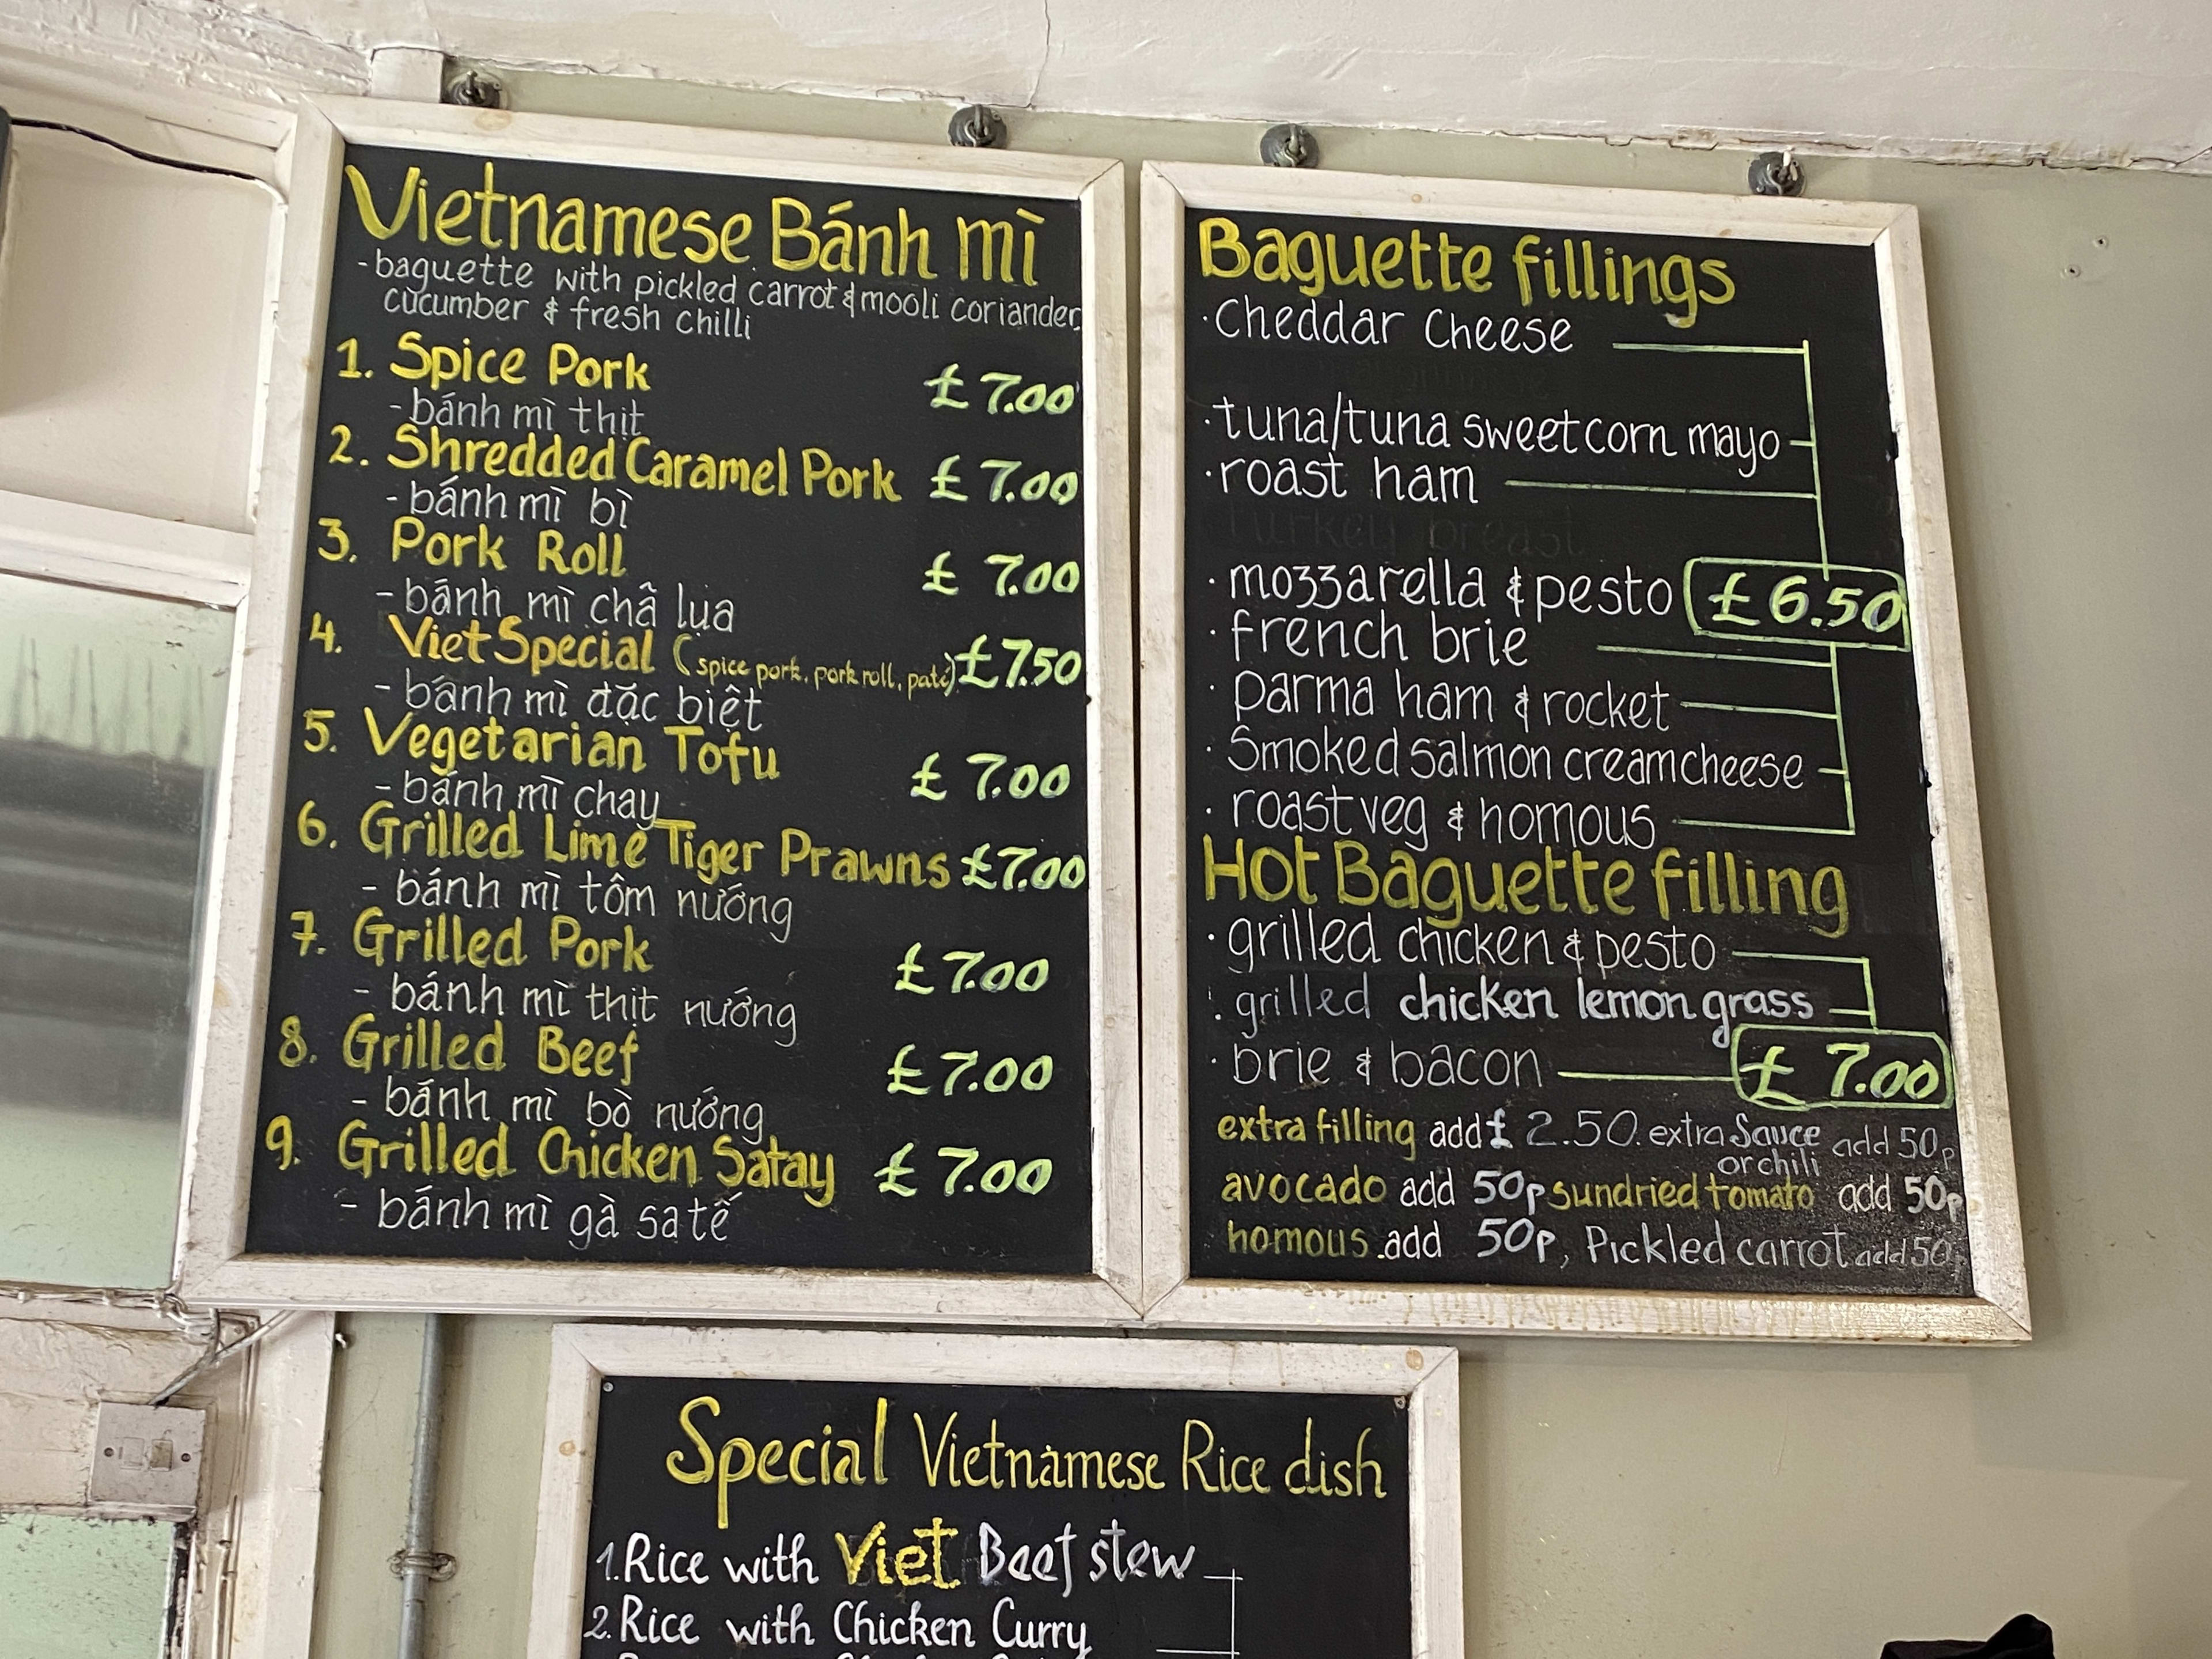 Vietnamese Bánh mì
-baguette with pickled carrot & mooli coriander,
cucumber & fresh chilli
1. Spice Pork £7.00
-bánh mì thịt
2. Shredded Caramel Pork £7.00
-bánh mì bì
3. Pork Roll £7.00
-bánh mì chã lụa
4. Viet Special (spice pork, pork roll, paté) £7.50
-bánh mì đặc biệt
5. Vegetarian Tofu £7.00
-bánh mì chay
6. Grilled Lime Tiger Prawns £7.00
- bánh mì tôm nướng
7. Grilled Pork £7.00
- bánh mì thịt nướng
8. Grilled Beef £7.00
- bánh mì bò nướng
9. Grilled Chicken Satay £7.00
- bánh mì gà satế
Baguette fillings
· Cheddar Cheese
· tuna/tuna sweetcorn mayo
· roast ham
turkey breast
· mozzarella & pesto £6.50
· french brie
· parma ham & rocket
· Smoked salmon creamcheese
· roast veg & homous
Hot Baguette filling
· grilled chicken & pesto
· grilled chicken lemon grass
· brie & bacon £7.00
extra filling add £2.50. extra Sauce add 50p
or chili
avocado add 50p sundried tomato add 50p
homous .add 50p, Pickled carrot add 50
Special Vietnamese Rice dish
1. Rice with Viet Beef stew
2. Rice with Chicken Curry